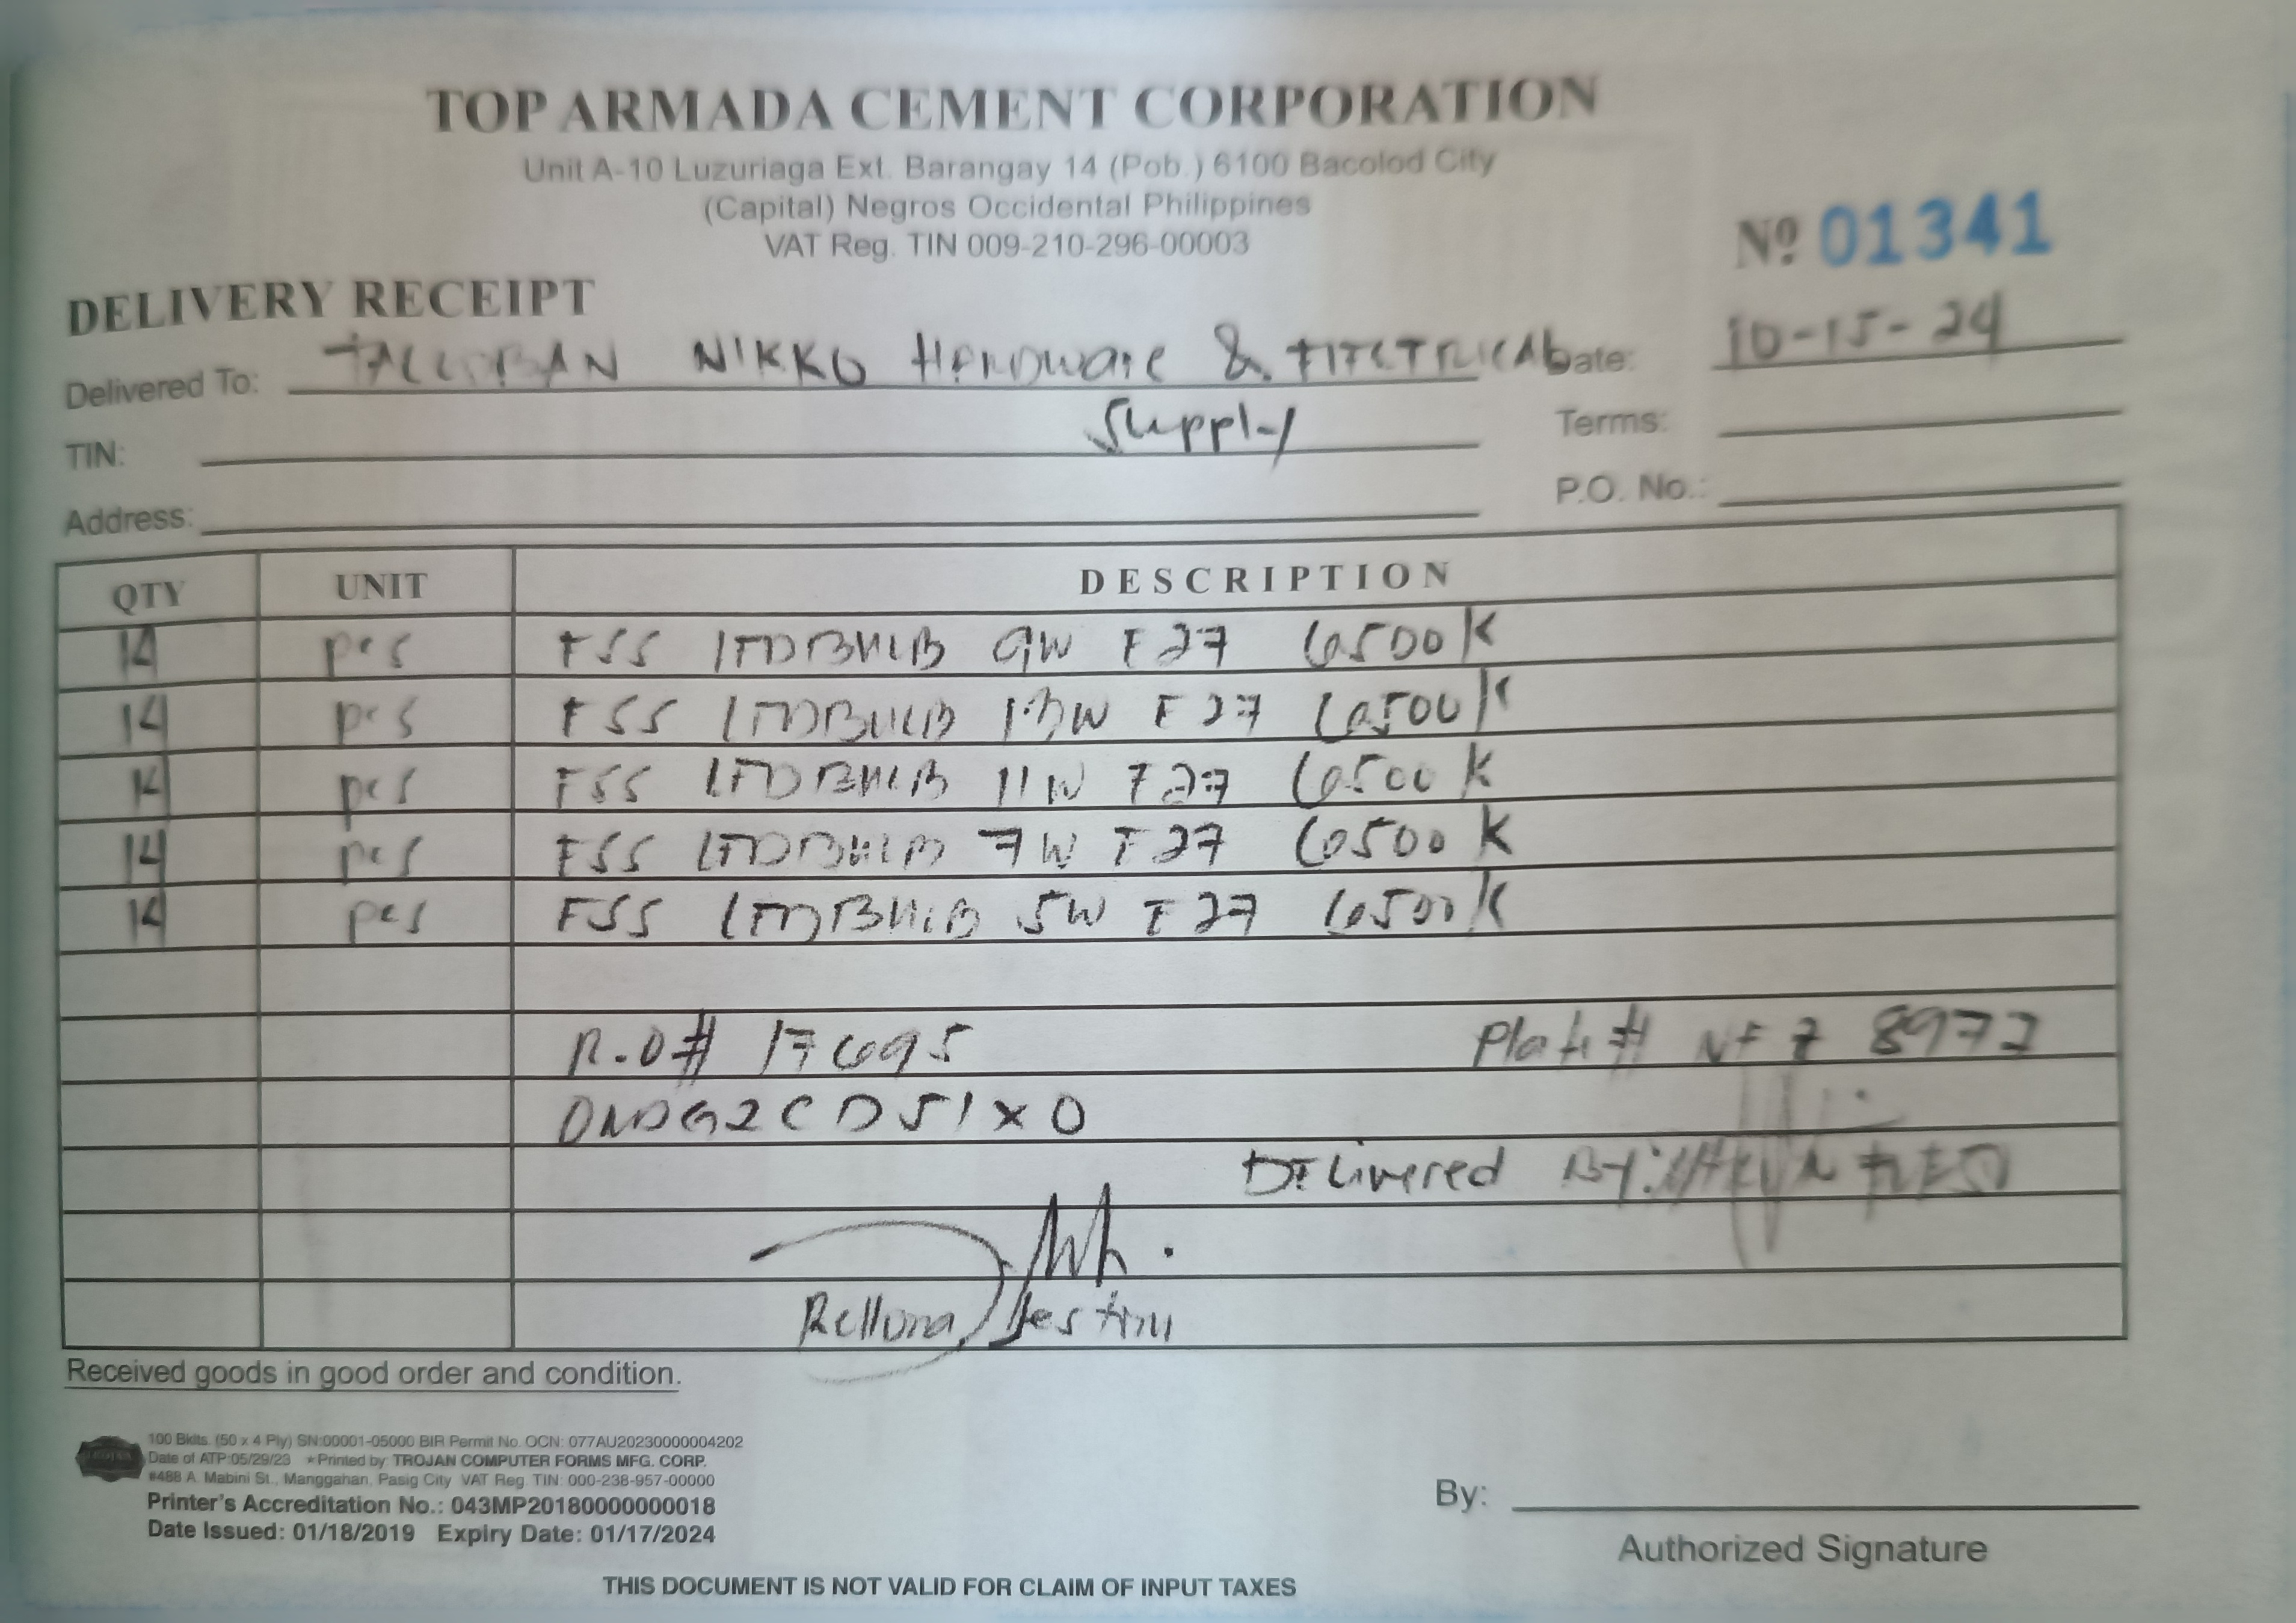 TOP ARMADA CEMENT CORPORATION
Unit A-10 Luzuriaga Ext. Barangay 14 (Pob.) 6100 Bacolod City
(Capital) Negros Occidental Philippines
VAT Reg. TIN 009-210-296-00003
Nº 01341
DELIVERY RECEIPT
Delivered To: TACLOBAN NIKKO HArDwarE & ELECTRICAL Date: 10-15-24
Supply
TIN: Terms:
Address: P.O. No.:
QTY UNIT DESCRIPTION
14 pcs FSS LEDBULB 9W E27 6500K
14 pcs FSS LEDBULB 13W E27 6500K
14 pcs FSS LEDBULB 11W E27 6500K
14 pcs FSS LEDBULB 7W E27 6500K
14 pcs FSS LEDBULB 5W E27 6500K
R.O# 17695 Plate# 8972
DELivered By:
Rellona,
Received goods in good order and condition.
100 Bklts. (50 x 4 Ply) SN:00001-05000 BIR Permit No. OCN: 077AU20230000004202
Date of ATP:05/29/23 *Printed by: TROJAN COMPUTER FORMS MFG. CORP.
#488 A. Mabini St., Manggahan, Pasig City VAT Reg. TIN: 000-238-957-00000
Printer's Accreditation No.: 043MP20180000000018
Date Issued: 01/18/2019 Expiry Date: 01/17/2024
By:
Authorized Signature
THIS DOCUMENT IS NOT VALID FOR CLAIM OF INPUT TAXES